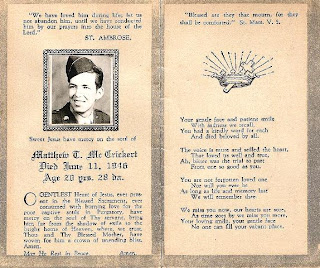 "We have loved him during life, let us
not abandon him, until we have conducted
him by our prayers into the house of the
Lord."
ST. AMBROSE.
Sweet Jesus have mercy on the soul of
Matthew T. Mc Crickert
Died June 11, 1946
Age 28 yrs. 28 da.
O GENTLEST Heart of Jesus, ever pres-
ent in the Blessed Sacrament, ever
consumed with burning love for the
poor captive souls in Purgatory, have
mercy on the soul of Thy servant, bring
him far from the shadow of exile to the
bright home of Heaven, where, we trust,
Thou and Thy Blessed Mother, have
woven for him a crown of unending bliss.
Amen.
May He Rest in Peace. Amen.
"Blessed are they that mourn, for they
shall be comforted." St. Matt. V. 5.
Your gentle face and patient smile
With sadness we recall,
You had a kindly word for each
And died beloved by all.
The voice is mute and stilled the heart,
That loved us well and true,
Ah, bitter was the trial to part
From one so good as you.
You are not forgotten loved one
Nor will you ever be
As long as life and memory last
We will remember thee
We miss you now, our hearts are sore,
As time goes by we miss you more,
Your loving smile, your gentle face
No one can fill your vacant place.